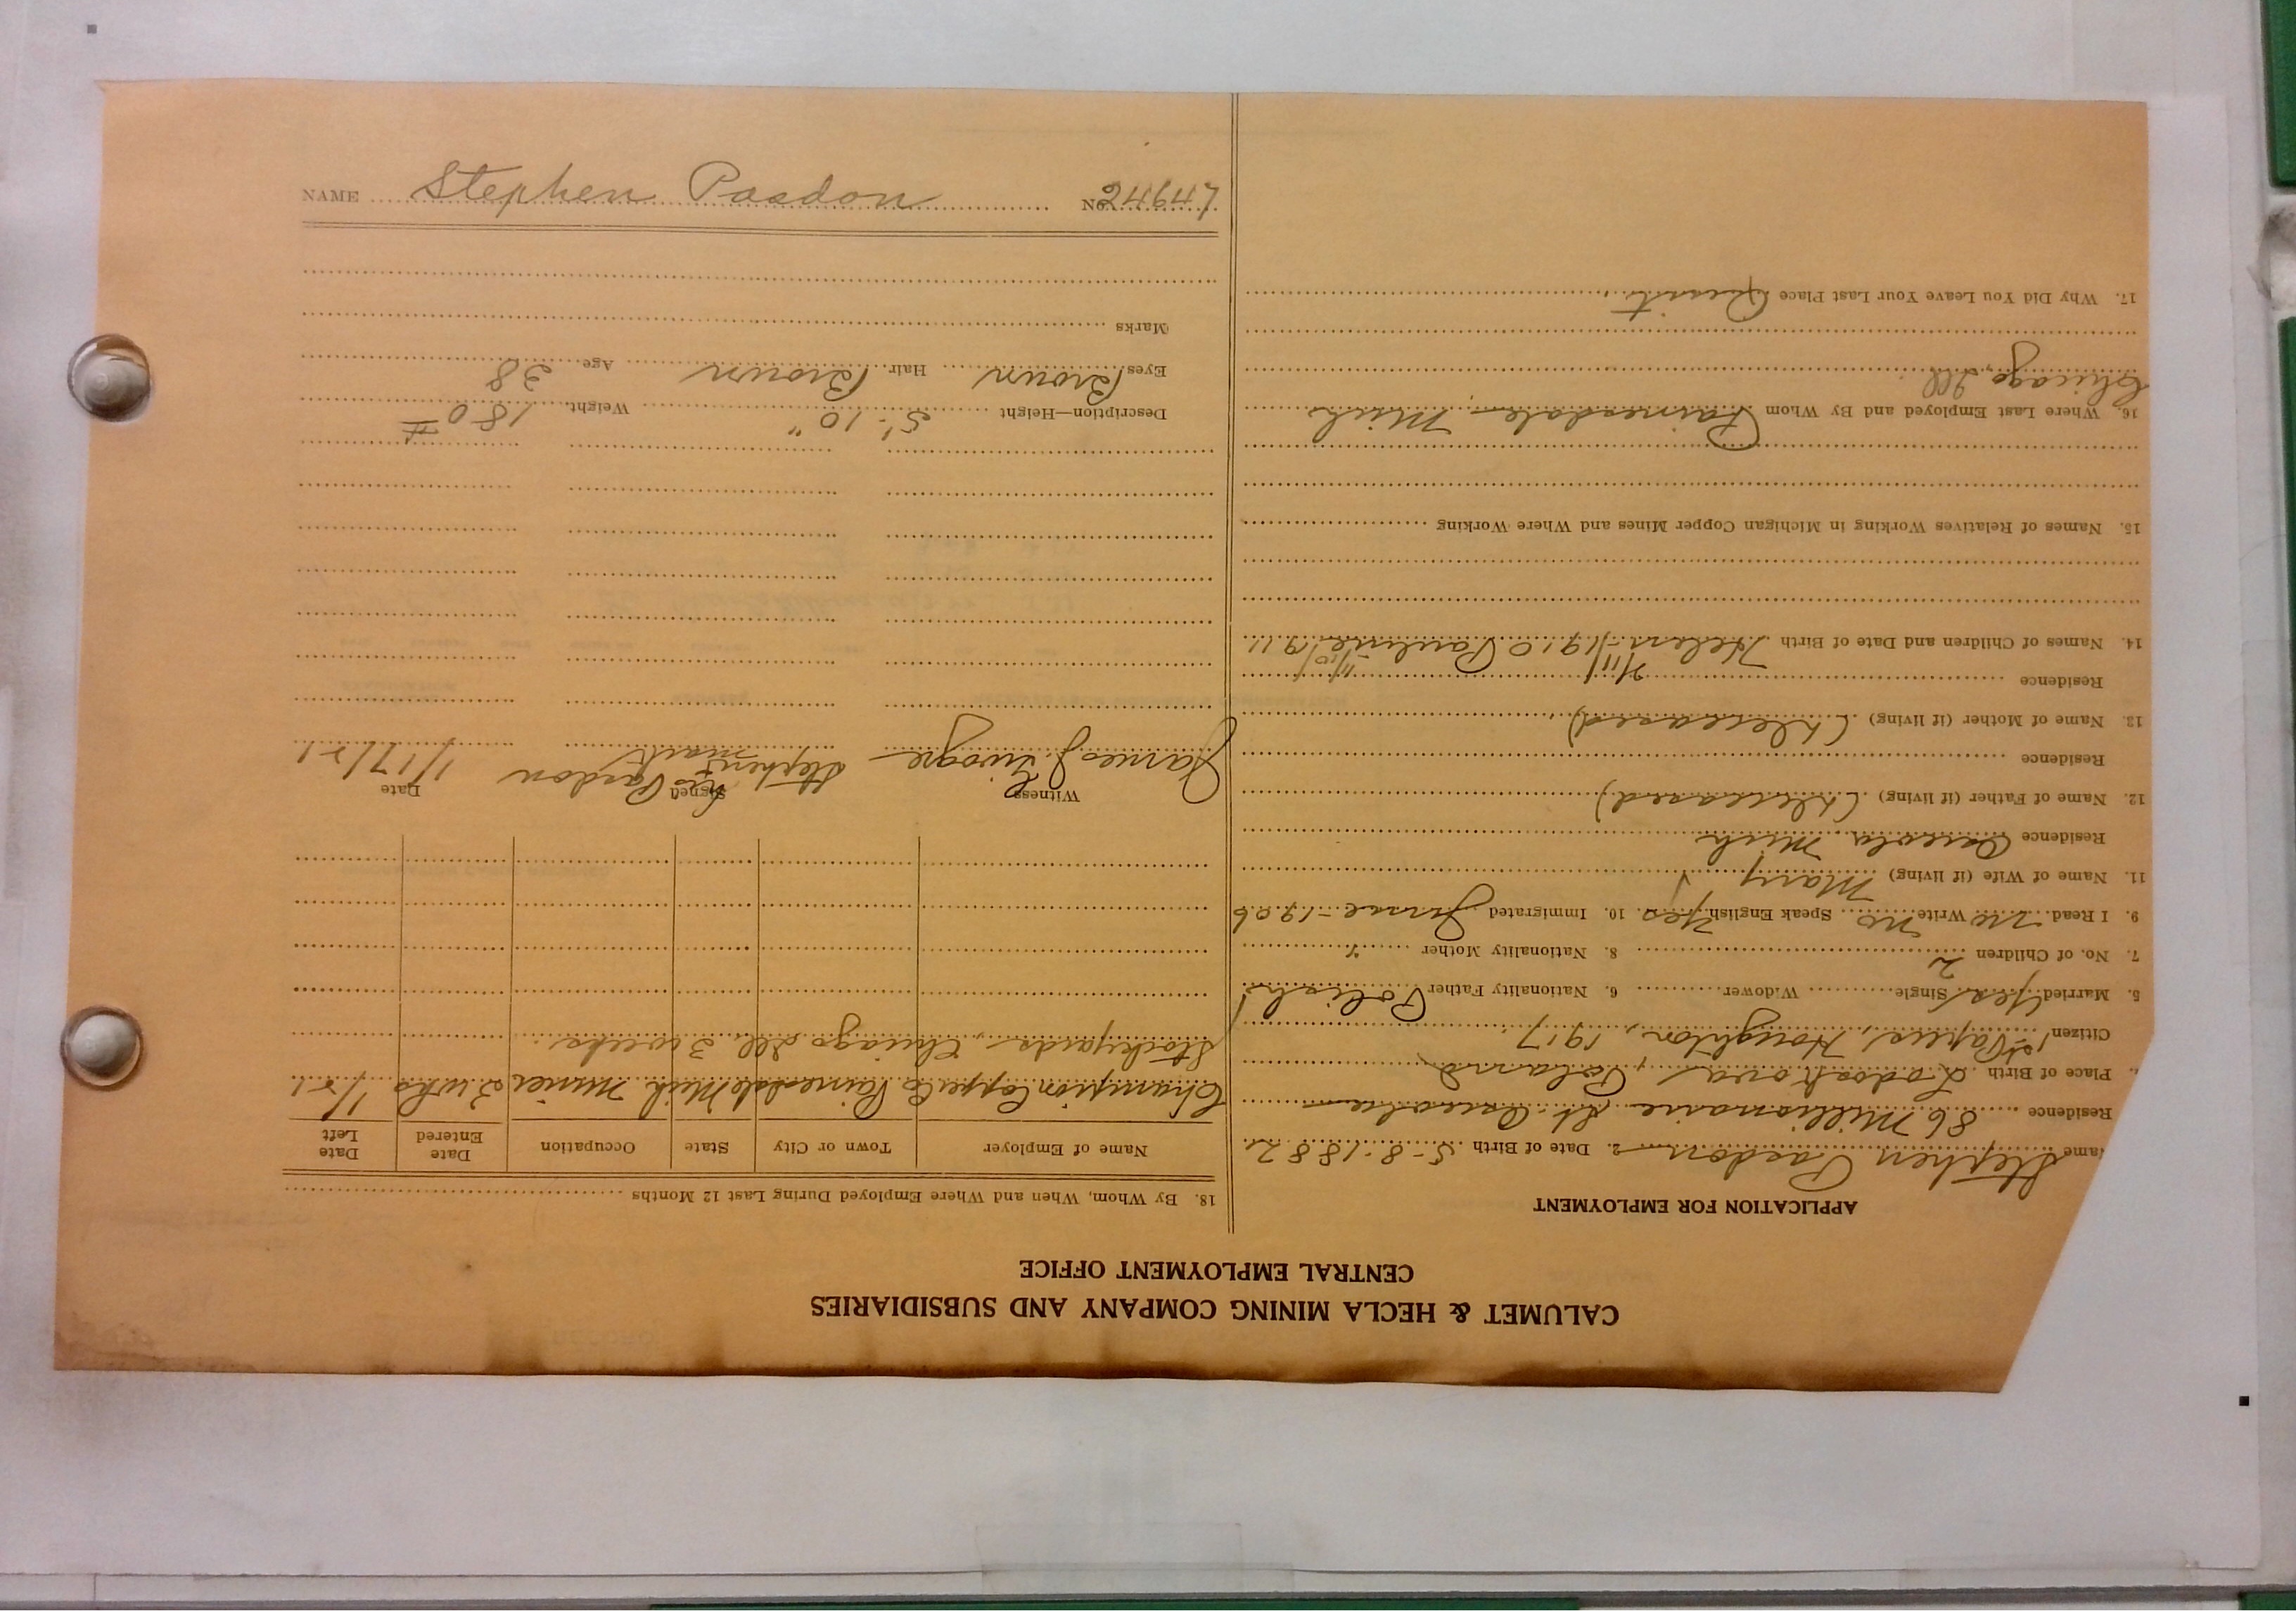 CALUMET & HECLA MINING COMPANY AND SUBSIDIARIES
CENTRAL EMPLOYMENT OFFICE
APPLICATION FOR EMPLOYMENT
Name Stephen Pasdon 2. Date of Birth 5-8-1882
Residence 86 Millionaire St. Osceola
Place of Birth Poland
Citizen 1st Papers, Houghton, 1917
5. Married Yes Single Widower 6. Nationality Father Polish
7. No. of Children 2 8. Nationality Mother "
9. I Read no Write no Speak English Yes 10. Immigrated June - 1906
11. Name of Wife (if living) Mary
Residence Osceola Mich
12. Name of Father (if living) (Deceased)
Residence
13. Name of Mother (if living) (Deceased)
Residence
14. Names of Children and Date of Birth Helen 7/11/1910 Pauline 11/10/1911
15. Names of Relatives Working in Michigan Copper Mines and Where Working
16. Where Last Employed and By Whom Painesdale Mich
Chicago Ill
17. Why Did You Leave Your Last Place Quit
18. By Whom, When and Where Employed During Last 12 Months
Name of Employer Town or City State Occupation Date Entered Date Left
Champion Copper Co Painesdale Mich Miner 3 wks 1/21
Stockyards, Chicago Ill 3 weeks
Witness Signed Date
James J. Stephen his x mark Pasdon 1/17/21
Description—Height 5'-10" Weight 180 #
Eyes Brown Hair Brown Age 38
Marks
NAME Stephen Pasdon No. 24947